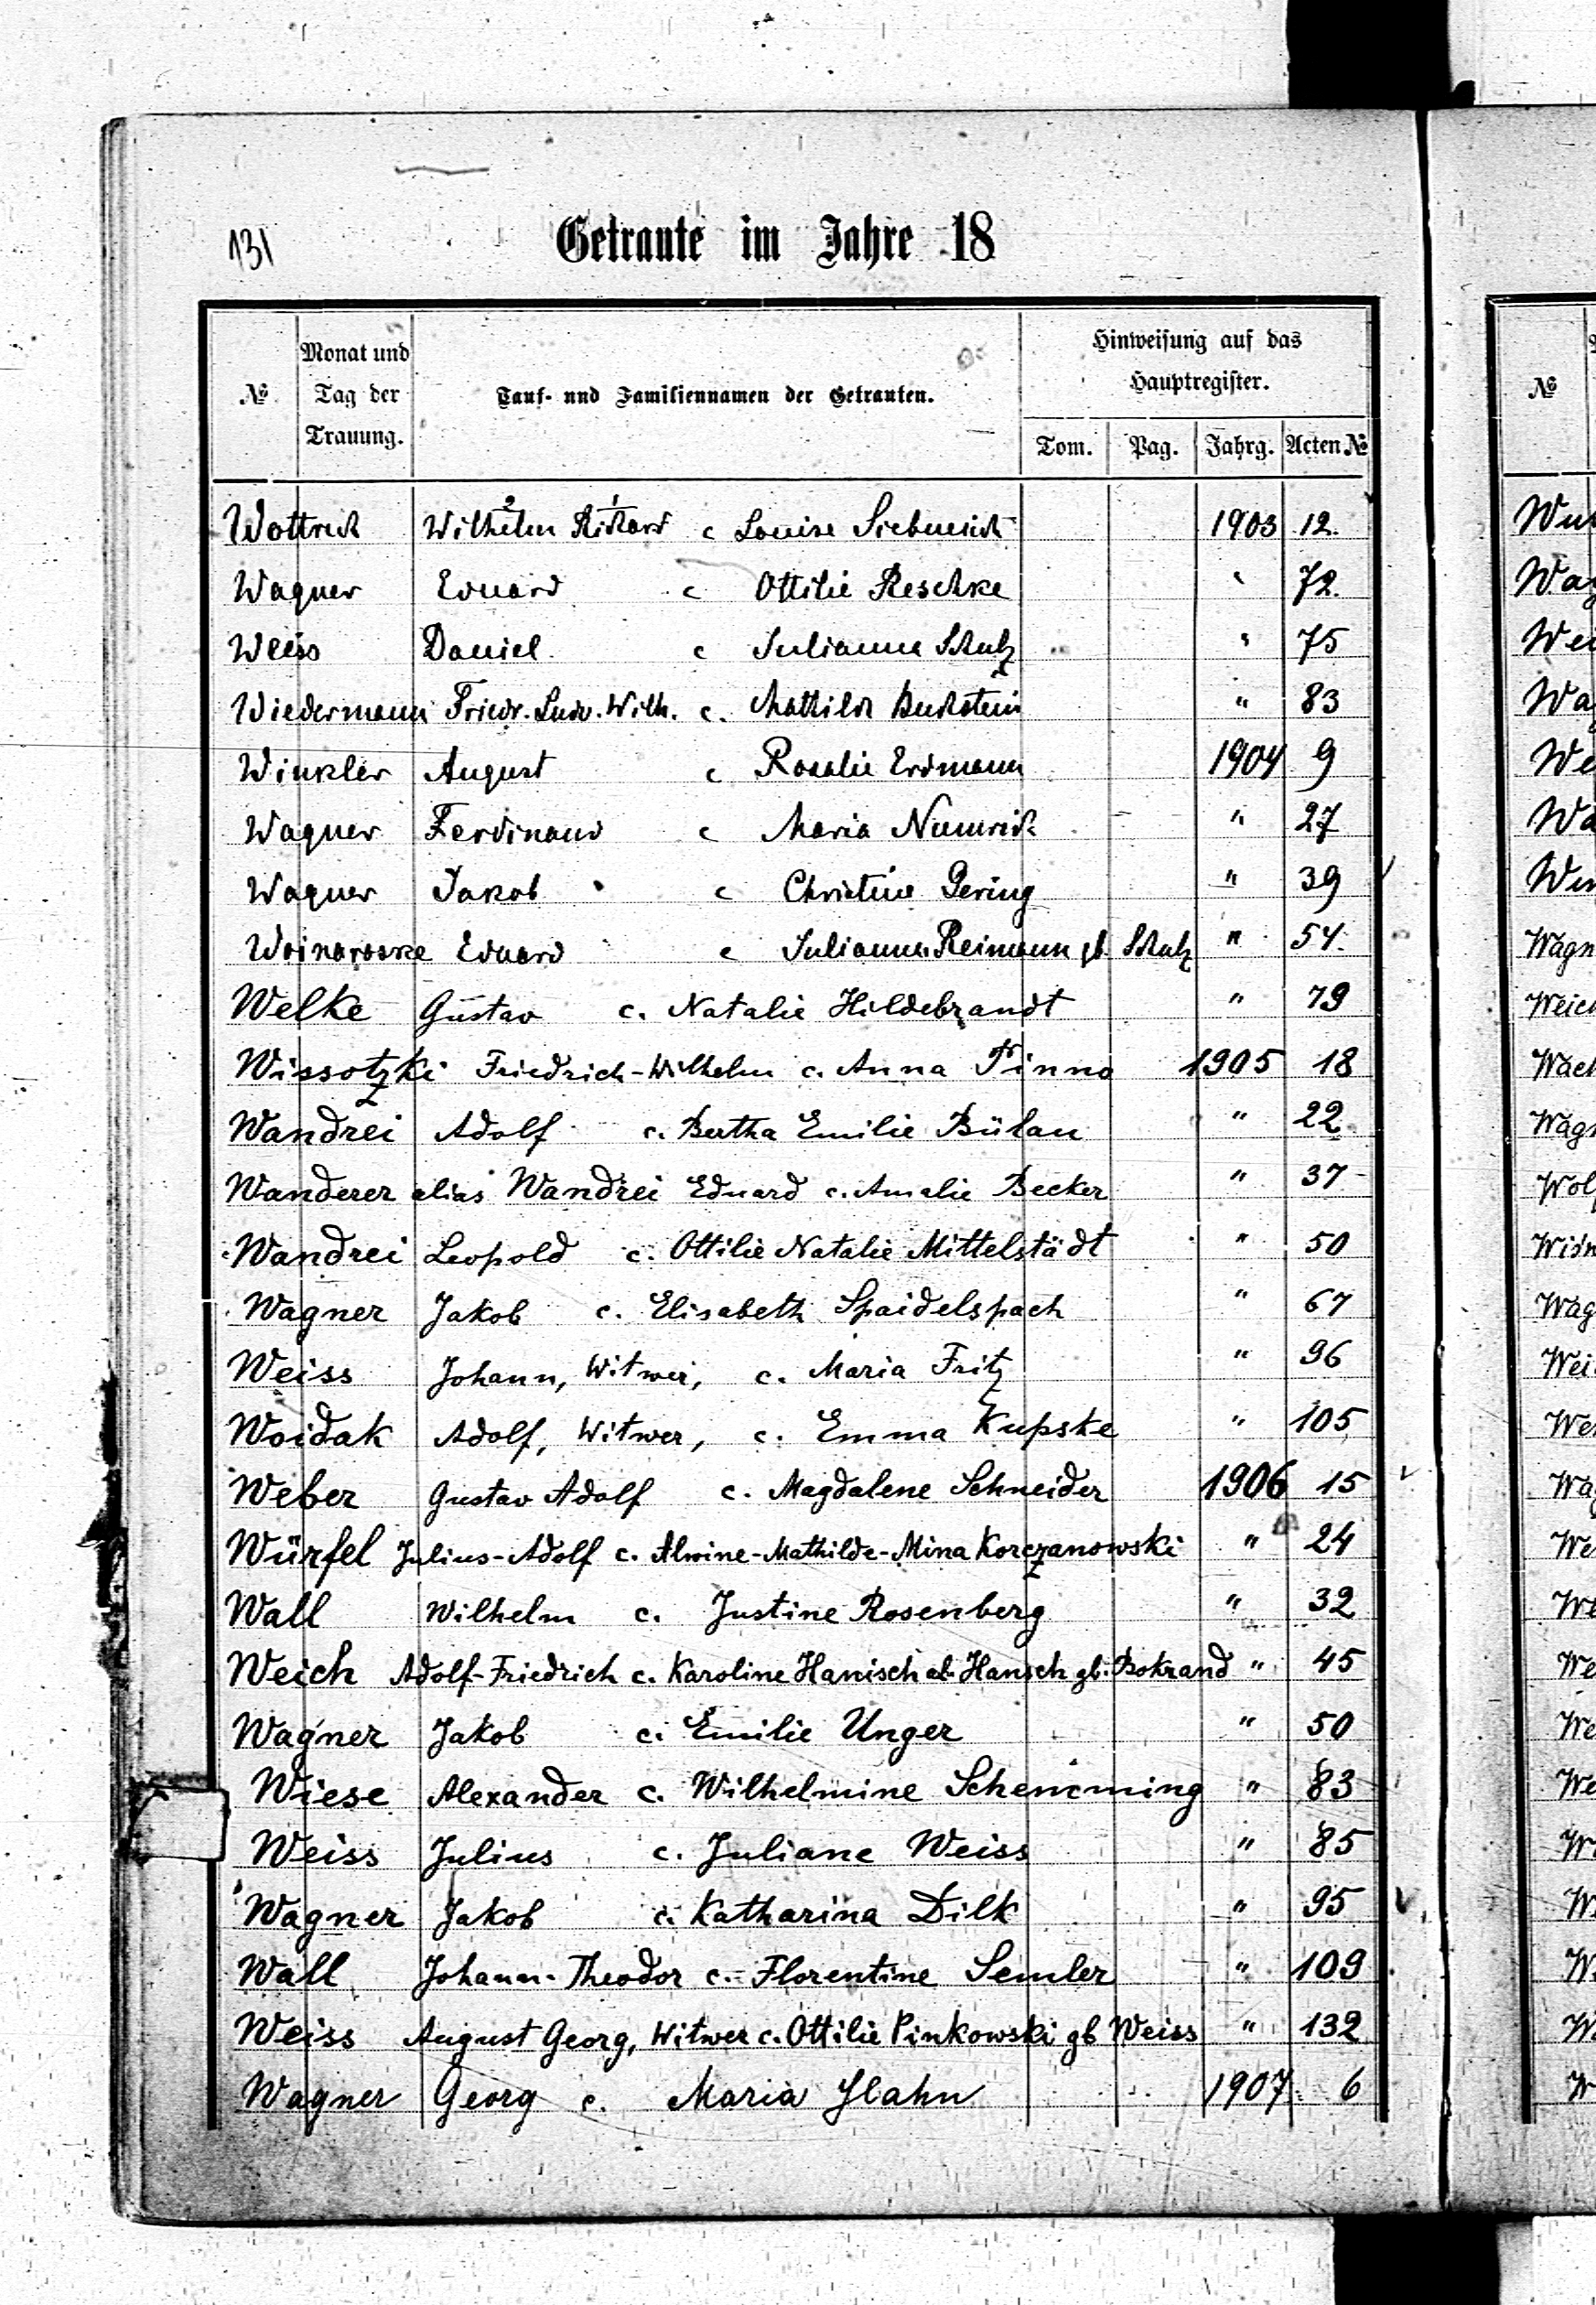 131
Getraute im Jahre 18
№ Monat und Tag der Trauung. Tauf- und Familiennamen der Getrauten. Hinweisung auf das Hauptregister.
Tom. Pag. Jahrg. Acten №
Wottrich Wilhelm 2 Richard 1 c Louise 1903 12.
Wagner Eduard c Ottilie Reschke " 72.
Weiss Daniel c Julianne Schulz " 75
Wiedermann Friedr. Ludw. Wilh. c. Mathilde Buchstein " 83
Winkler August c Rosalie Erdmann 1904 9
Wagner Ferdinand c Maria Numrich " 27
Wagner Jakob c Christine Gering " 39
Eduard c Julianna Reimann gb. Schulz " 54.
Welke Gustav c. Natalie Hildebrandt " 79
Wissotzki Friedrich-Wilhelm c. Anna Pinno 1905 18
Wandrei Adolf c. Bertha Emilie Bülau " 22
Wanderer alias Wandrei Eduard c. Amalie Becker " 37
Wandrei Leopold c. Ottilie Natalie Mittelstädt " 50
Wagner Jakob c. Elisabeth Spaidelspach " 67
Weiss Johann, Witwer, c. Maria Fritz " 96
Woidak Adolf, Witwer, c. Emma Kupske " 105
Weber Gustav Adolf c. Magdalene Schneider 1906 15
Würfel Julius-Adolf c. Alwine-Mathilde-Mina Korczanowski " 24
Wall Wilhelm c. Justine Rosenberg " 32
Weich Adolf-Friedrich c. Karoline Hanisch al. Hansch gb. Bokrand " 45
Wagner Jakob c. Emilie Unger " 50
Wiese Alexander c. Wilhelmine Schemming " 83
Weiss Julius c. Juliane Weiss " 85
Wagner Jakob c. Katharina Dilk " 95
Wall Johann-Theodor c. Florentine Semler " 109
Weiss August Georg, Witwer c. Ottilie Pinkowski gb Weiss " 132
Wagner Georg c. Maria Hahn 1907 6
№